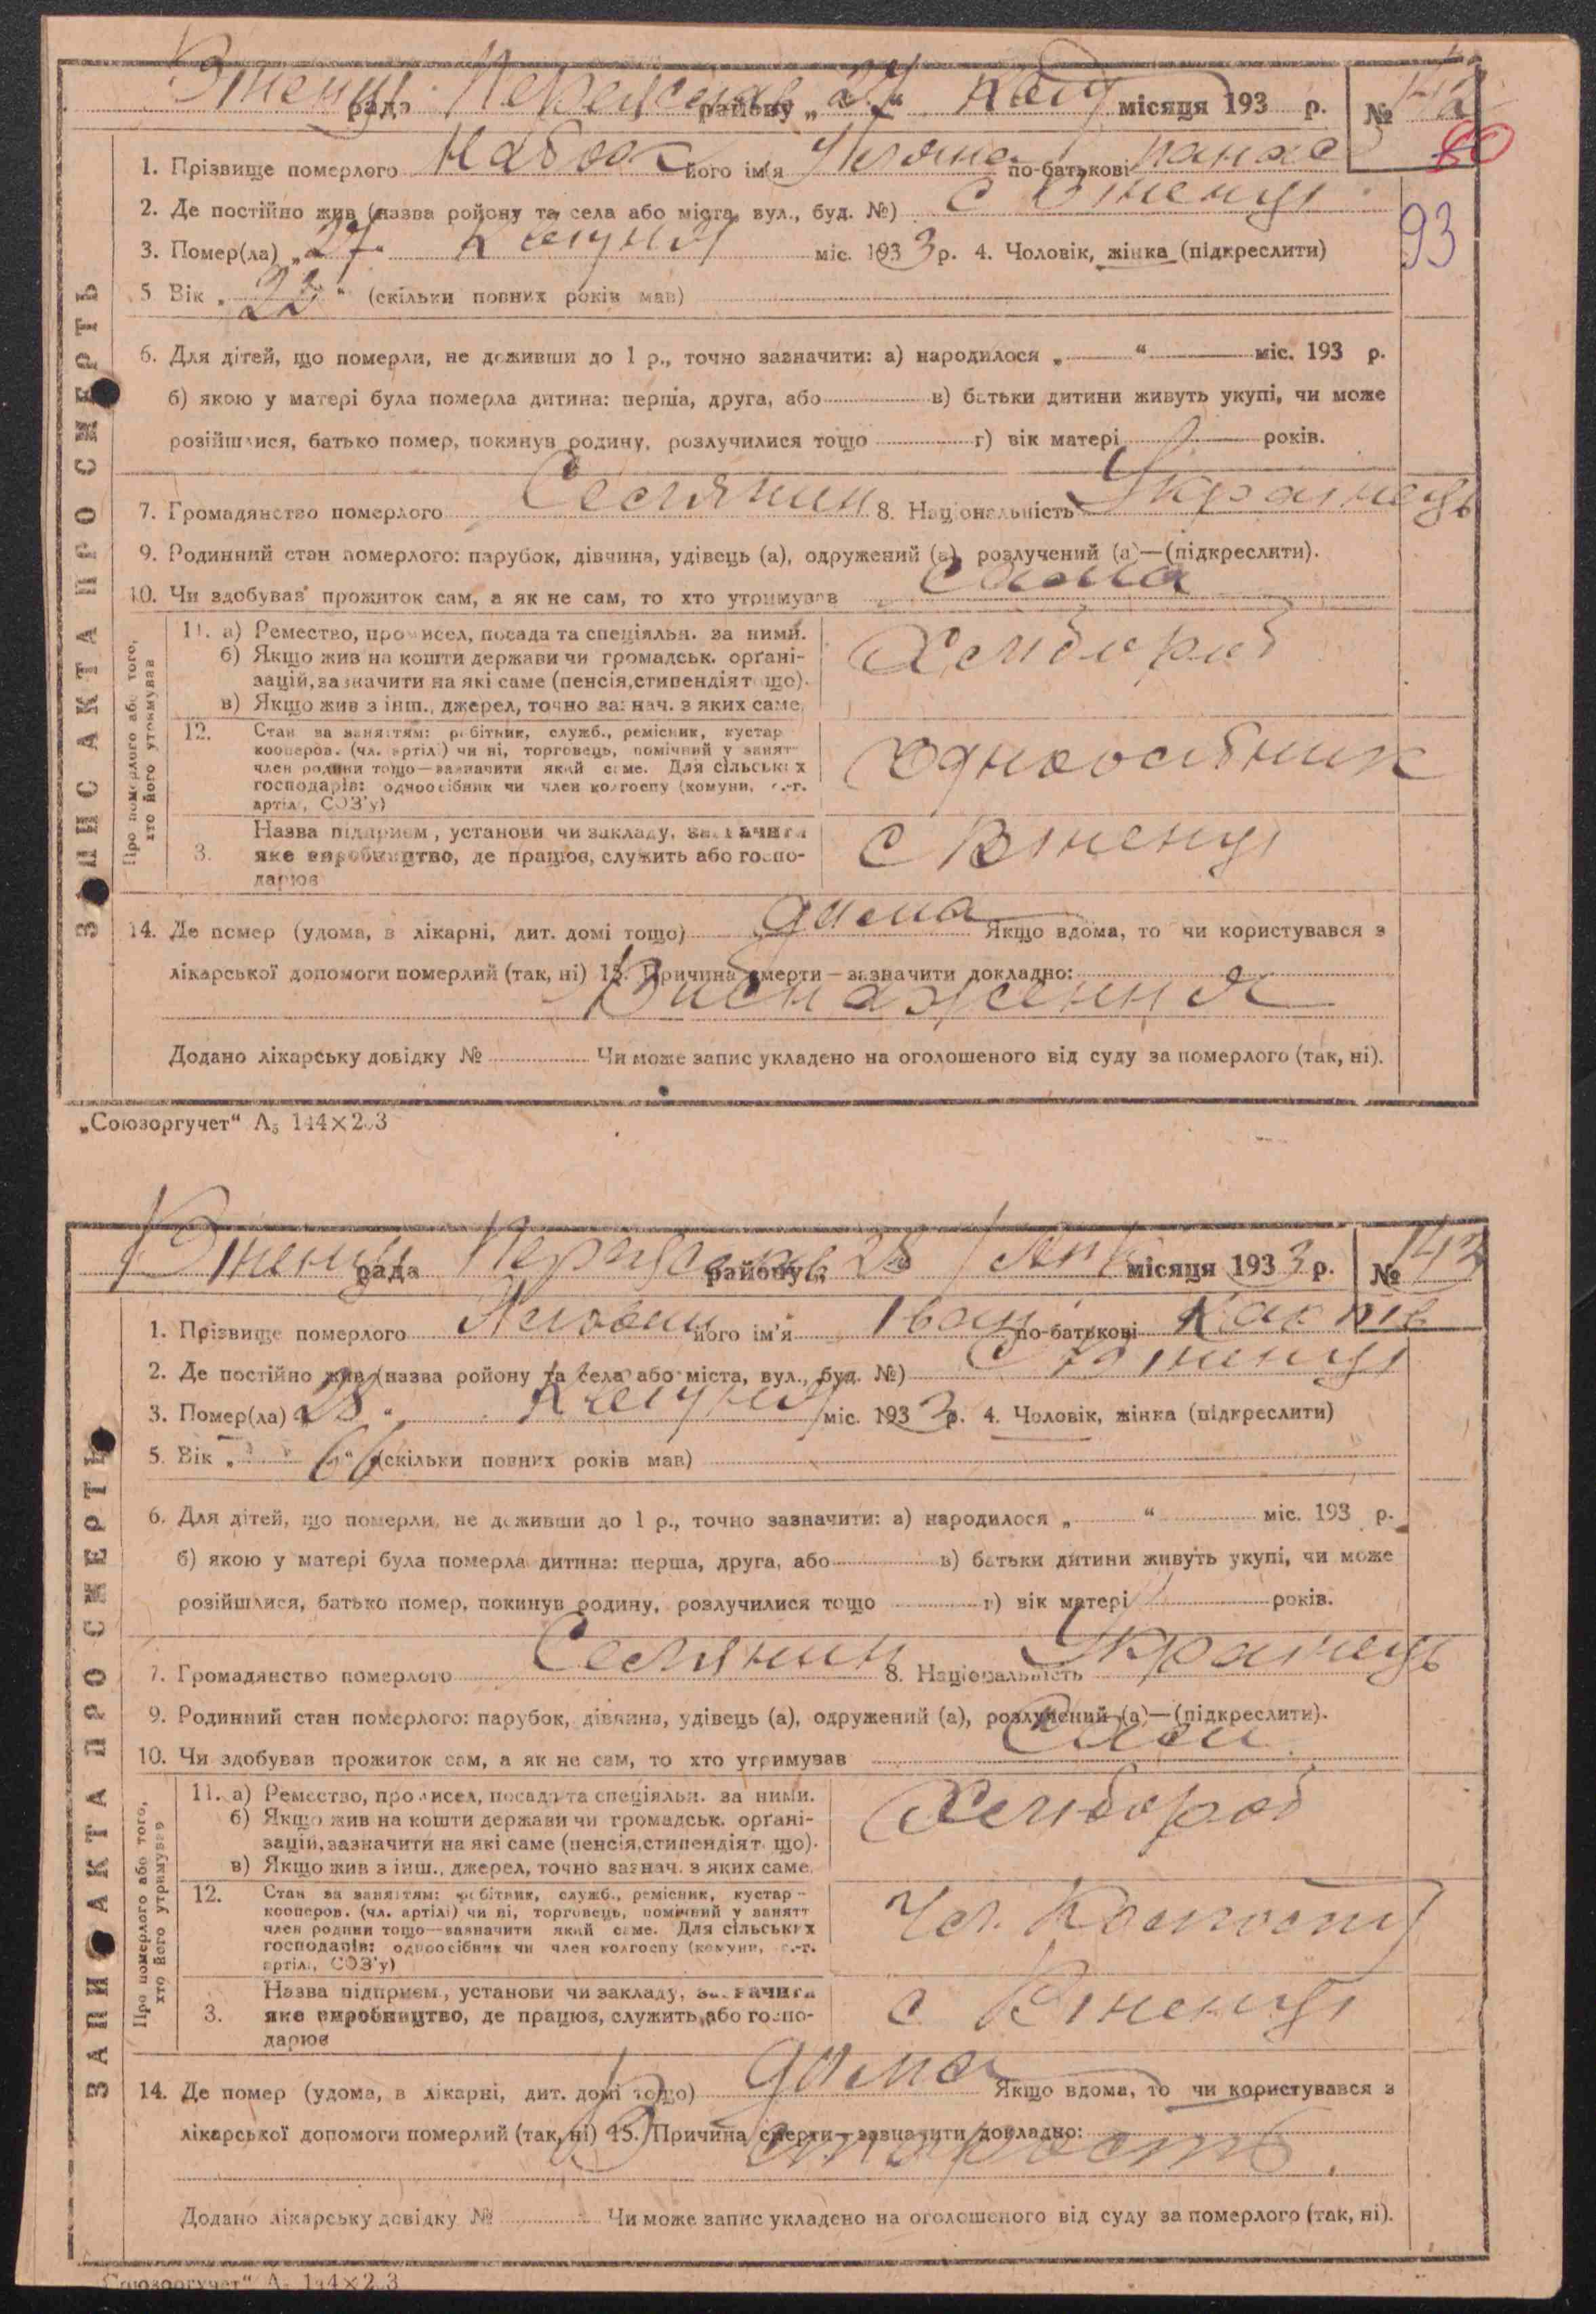 рада району „27“ місяця 193 р. №
1. Прізвище померлого Набок його ім'я Уляна по-батькові Панас
2. Де постійно жив (назва ройону та села або міста, вул., буд. №) с Вюненці
3. Помер(ла) „27“ міс. 1933 р. 4. Чоловік, жінка (підкреслити)
93
5 Вік „ “ (скільки повних років мав)
6. Для дітей, що померли, не доживши до 1 р., точно зазначити: а) народилося „ “ міс. 193 р.
б) якою у матері була померла дитина: перша, друга, або в) батьки дитини живуть укупі, чи може
розійшлися, батько помер, покинув родину, розлучилися тощо г) вік матері років.
7. Громадянство померлого Селянин 8. Національність Українець
9. Родинний стан померлого: парубок, дівчина, удівець (а), одружений (а), розлучений (а)—(підкреслити).
10. Чи здобував прожиток сам, а як не сам, то хто утримував Сама
Про померлого або того, хто його утримував
11. а) Ремество, промисел, посада та спеціяльн. за ними. Хлібороб
б) Якщо жив на кошти держави чи громадськ. органі-
зацій, зазначити на які саме (пенсія, стипендія тощо).
в) Якщо жив з інш., джерел, точно зазнач. з яких саме,
12. Стан за заняттям: робітник, служб., ремісник, кустар
кооперов. (чл. артілі) чи ні, торговець, помічний у занят-
член родини тощо—зазначити який саме. Для сільських
господарів: одноосібник чи член колгоспу (комуни, с.-г.
артілі, СОЗ'у)
одноосібник
3. Назва підприєм., установи чи закладу, зазначити
яке виробництво, де працюв, служить або госпо-
дарюв
с
14. Де помер (удома, в лікарні, дит. домі тощо) дома Якщо вдома, то чи користувався з
лікарської допомоги померлий (так, ні) 15. Причина смерти—зазначити докладно:
Виснаження
Додано лікарську довідку № Чи може запис укладено на оголошеного від суду за померлого (так, ні).
ЗАПИС АКТА ПРО СМЕРТЬ
„Союзоргучет“ А₅ 144×203
рада району „28“ місяця 1933 р. № 143
1. Прізвище померлого його ім'я Іван по-батькові
2. Де постійно жив (назва ройону та села або міста, вул., буд. №) с
3. Помер(ла) „28“ міс. 1933 р. 4. Чоловік, жінка (підкреслити)
5. Вік „66“ (скільки повних років мав)
6. Для дітей, що померли, не доживши до 1 р., точно зазначити: а) народилося „ “ міс. 193 р.
б) якою у матері була померла дитина: перша, друга, або в) батьки дитини живуть укупі, чи може
розійшлися, батько помер, покинув родину, розлучилися тощо г) вік матері років.
7. Громадянство померлого Селянин 8. Національність Українець
9. Родинний стан померлого: парубок, дівчина, удівець (а), одружений (а), розлучений (а)—(підкреслити).
10. Чи здобував прожиток сам, а як не сам, то хто утримував Сам
Про померлого або того, хто його утримував
11. а) Ремество, промисел, посада та спеціяльн. за ними. Хлібороб
б) Якщо жив на кошти держави чи громадськ. органі-
зацій, зазначити на які саме (пенсія, стипендія тощо).
в) Якщо жив з інш., джерел, точно зазнач. з яких саме,
12. Стан за заняттям: робітник, служб., ремісник, кустар-
кооперов. (чл. артілі) чи ні, торговець, помічний у занятт
член родини тощо—зазначити який саме. Для сільських
господарів: одноосібник чи член колгоспу (комуни, с.-г.
артілі, СОЗ'у)
Чл. Колгоспу
3. Назва підприєм., установи чи закладу, зазначити
яке виробництво, де працюв, служить, або госпо-
дарюв
с
14. Де помер (удома, в лікарні, дит. домі тощо) дома Якщо вдома, то чи користувався з
лікарської допомоги померлий (так, ні) 15. Причина смерти—зазначити докладно:
старость
Додано лікарську довідку № Чи може запис укладено на оголошеного від суду за померлого (так, ні).
ЗАПИС АКТА ПРО СМЕРТЬ
„Союзоргучет“ А₅ 144×203